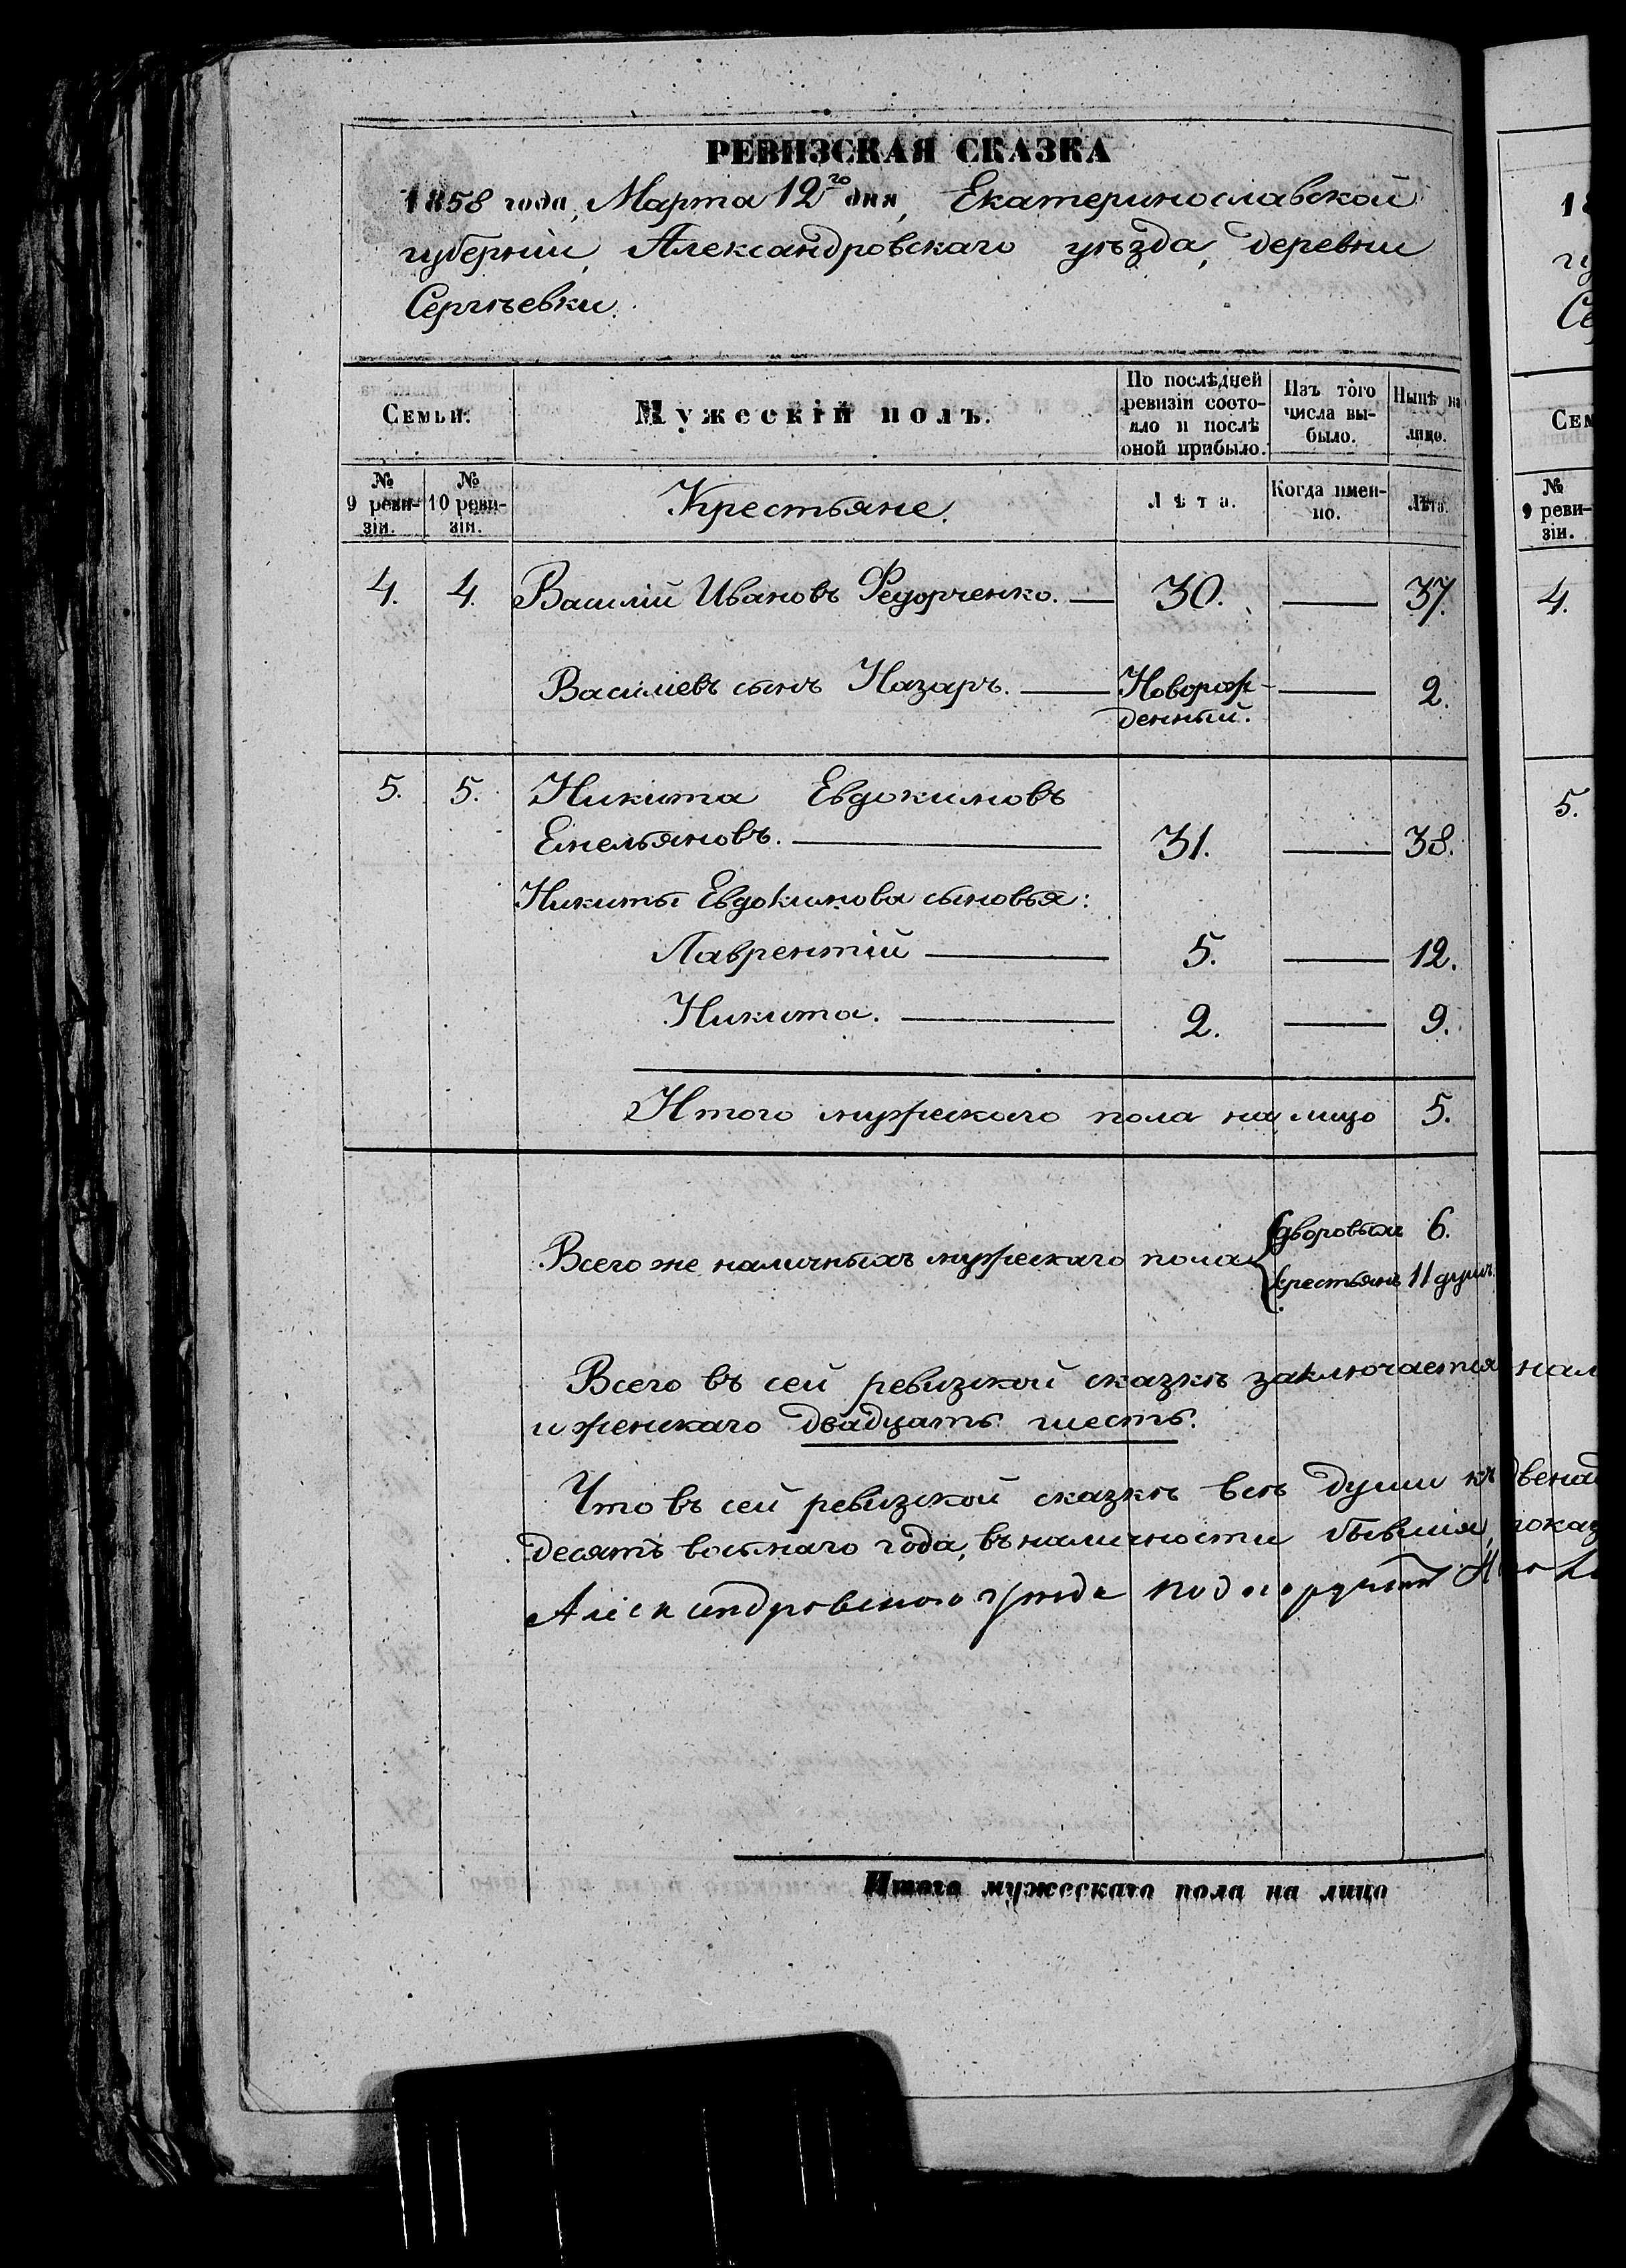 РЕВИЗСКАЯ СКАЗКА
1858 года, Марта 12го дня, Екатеринославской
губерніи, Александровскаго уѣзда, деревни
Сергѣевки.
Семьи.
Мужескій полъ.
По послѣдней
ревизіи состо-
яло и послѣ
оной прибыло.
Изъ того
числа вы-
было.
Нынѣ на
лицо.
№
9 реви-
зіи.
№
10 реви-
зіи.
Крестьяне.
Лѣта.
Когда имен-
но.
Лѣта.
4. 4. Василій Ивановъ Федорченко. — 30. — 37.
Василіевъ сынъ Назаръ. — Новорож- — 2.
денный.
5. 5. Никита Евдокимовъ
Емельяновъ. — 31. — 38.
Никиты Евдокимова сыновья:
Лаврентій — 5. — 12.
Никита. — 2. — 9.
Итого мужескаго пола на лицо 5.
дворовыхъ 6.
Всего же наличныхъ мужескаго пола
крестьянъ 11 душъ.
Всего въ сей ревизской сказкѣ заключается нал
и женскаго двадцать шесть.
Что въ сей ревизской сказкѣ всѣ души къ двенад
десятъ восьмаго года, въ наличности бывшія, показ
Александровского уезда подпоручик
Итого мужескаго пола на лицо
18
гу
Се
Сем
№
9 реви-
зіи.
4.
5.